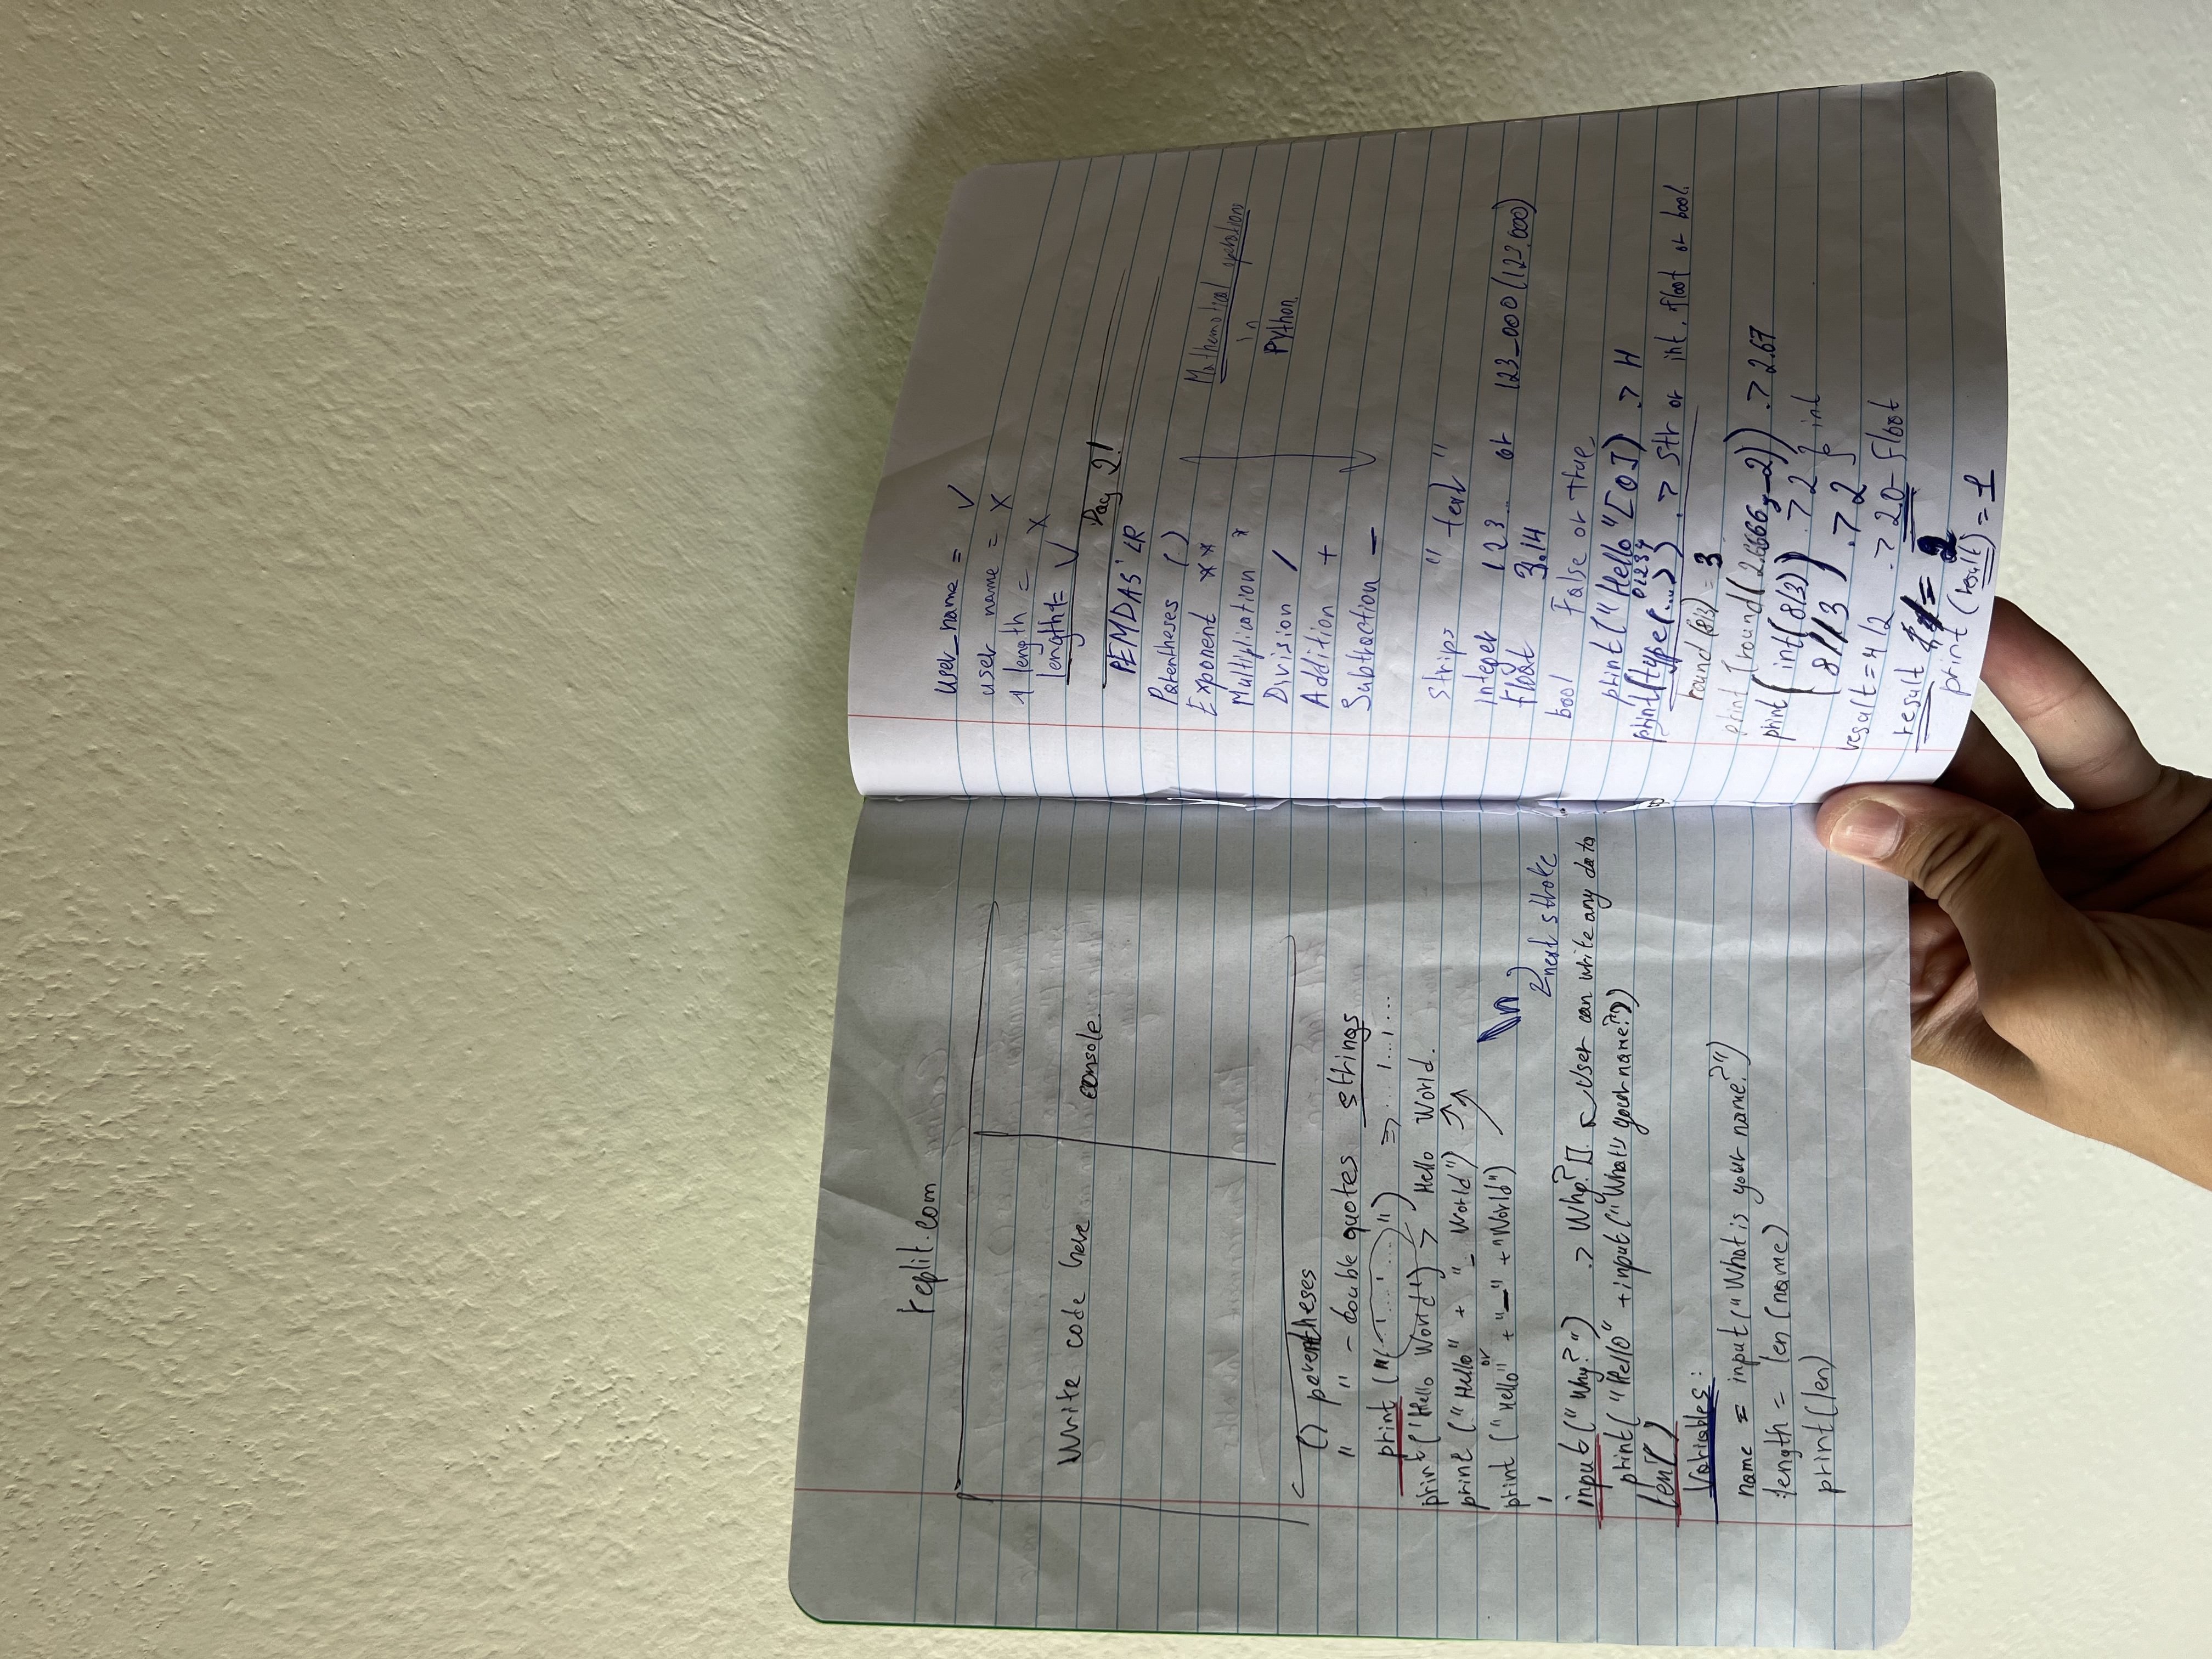 replit.com
Write code here
console.
() perentheses
" " - double quotes strings
print ("...1...1...") => ...1...1...
print('Hello World') > Hello World.
print ("Hello" + "_ World")
or
print ("Hello" + "_" + "World")
\n
next stroke
input ("Why?") .> Why? []. User can write any data
print("Hello" + input("What's your name?"))
len()
Variables:
name = input("What is your name?")
length = len (name)
print(len)
user_name = ✓
user name = X
1 length = X
length1= ✓
Day 2!
PEMDAS LR
Parentheses ( )
Exponent **
Multiplication *
Division /
Addition +
Subtraction -
Mathematical operations
in
Python.
Strips "text"
integer 123.. or 123_000(123,000)
Float 3.14
bool False or true,
print("Hello"[0]) .> H
01234
print(type(...)) .> Str or int, float or bool.
round (8/3) = 3
print (round(2.6666,_2)) .> 2.67
print (int(8/3)) .> 2 } int
8//3 ) .> 2
result = 4/2 .> 2.0 - Float
result /= 2
print (result) = 1